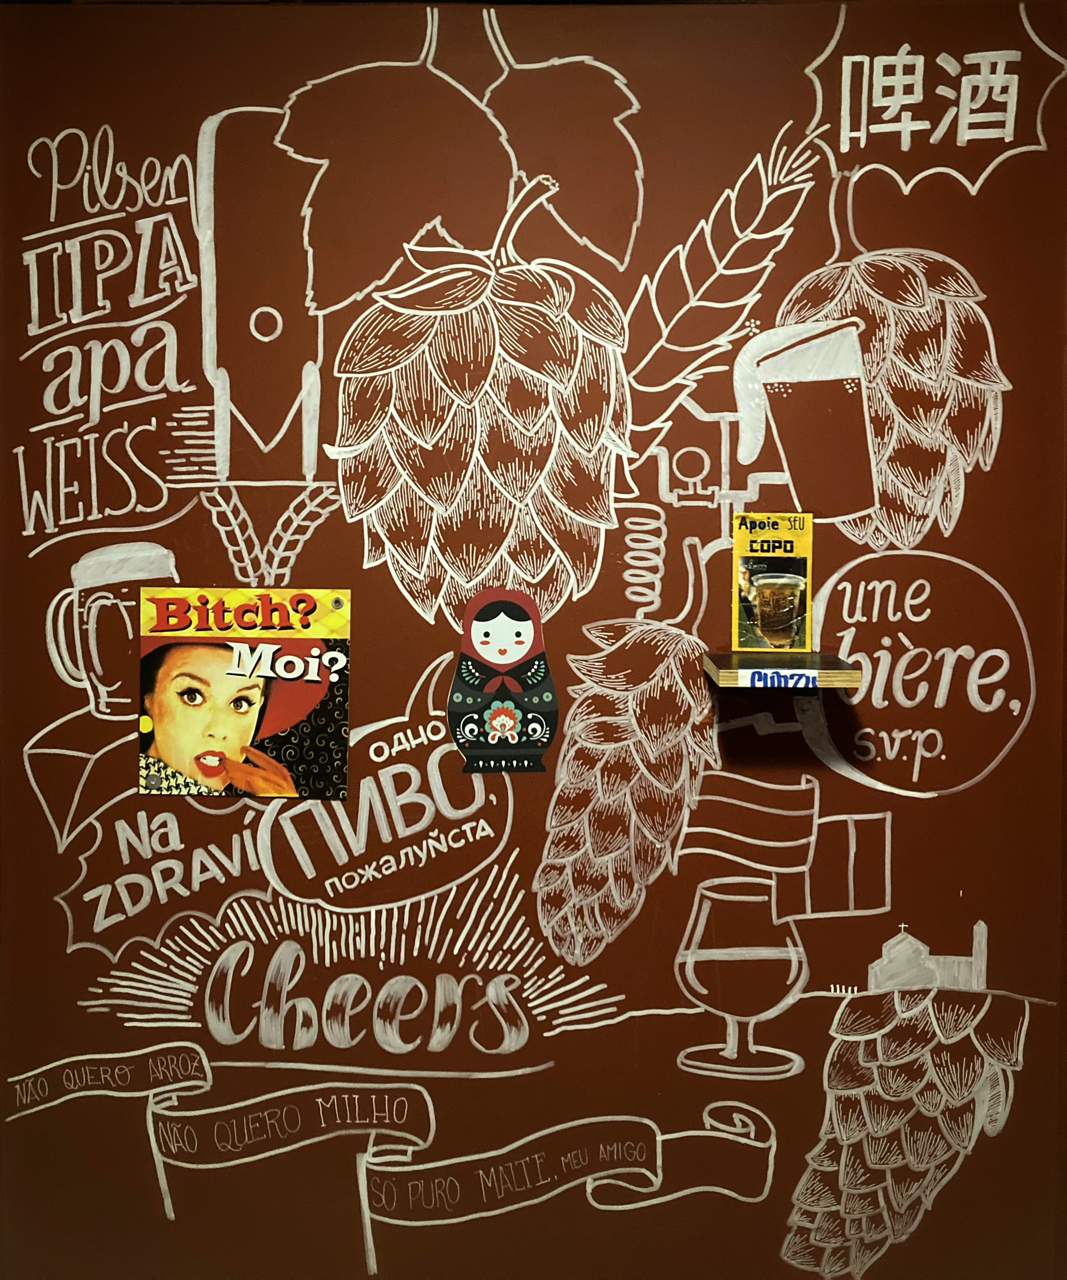 啤酒
Pilsen
IPA
apa
WEISS
Apoie SEU
COPO
Bitch?
Moi?
une
bière,
s.v.p.
ОДНО
ПИВО,
пожалуйста
Na
ZDRAVÍ
Cheers
NÃO QUERO ARROZ
NÃO QUERO MILHO
SÓ PURO MALTE, MEU AMIGO